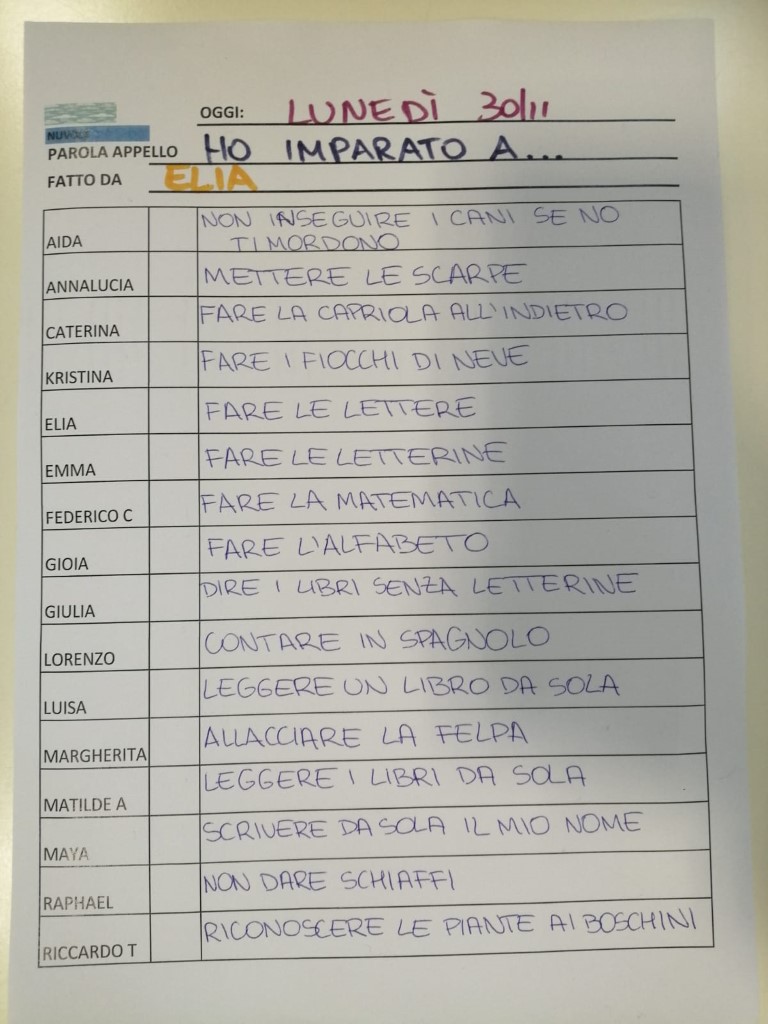 OGGI: LUNEDÌ 30/11
NUVOLE
PAROLA APPELLO HO IMPARATO A...
FATTO DA ELIA
AIDA NON INSEGUIRE I CANI SE NO
TI MORDONO
ANNALUCIA METTERE LE SCARPE
CATERINA FARE LA CAPRIOLA ALL'INDIETRO
KRISTINA FARE I FIOCCHI DI NEVE
ELIA FARE LE LETTERE
EMMA FARE LE LETTERINE
FEDERICO C FARE LA MATEMATICA
GIOIA FARE L'ALFABETO
GIULIA DIRE I LIBRI SENZA LETTERINE
LORENZO CONTARE IN SPAGNOLO
LUISA LEGGERE UN LIBRO DA SOLA
MARGHERITA ALLACCIARE LA FELPA
MATILDE A LEGGERE I LIBRI DA SOLA
MAYA SCRIVERE DA SOLA IL MIO NOME
RAPHAEL NON DARE SCHIAFFI
RICCARDO T RICONOSCERE LE PIANTE AI BOSCHINI